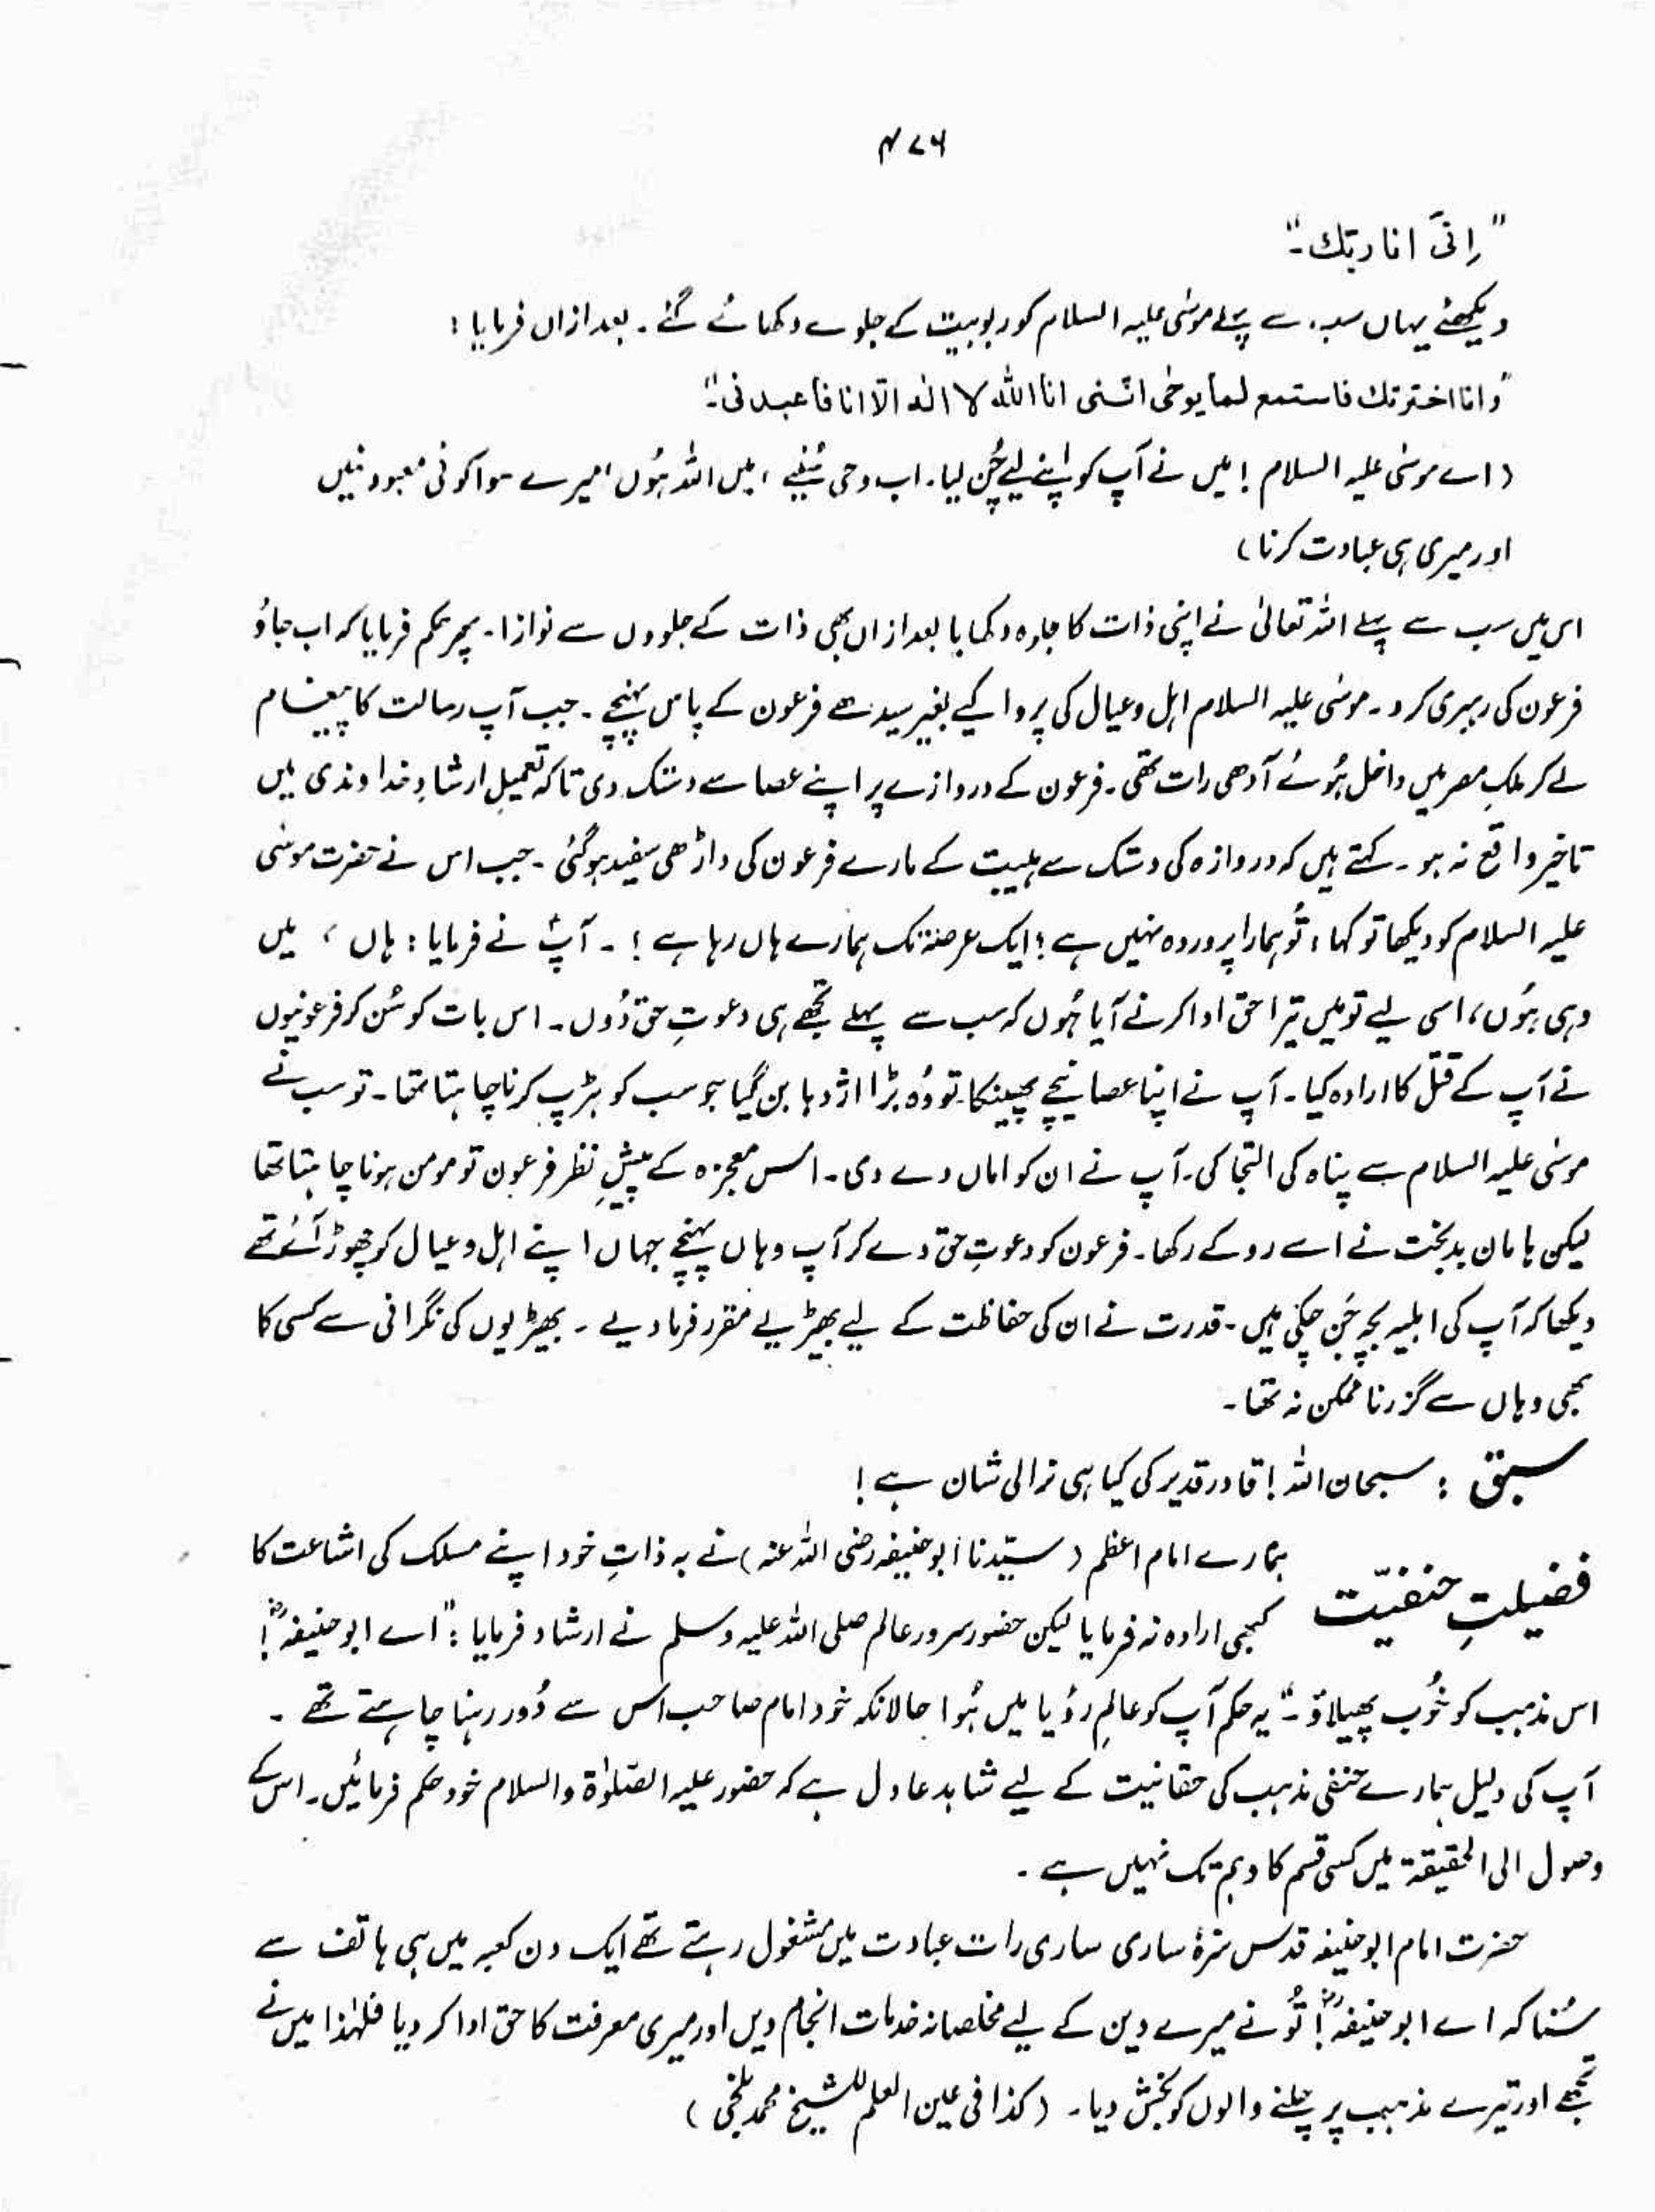 ۴۷۶
"اِنّیَ انا ربّك۔"
دیکھئے یہاں سب سے پہلے موسٰی علیہ السلام کو ربوبیت کے جلوے دکھائے گئے۔ بعد ازاں فرمایا:
"وانا اخترتك فاستمع لما یوحٰی انّنی انا اللہ لا الٰه الّا انا فاعبدنی۔"
(اے موسٰی علیہ السلام! میں نے آپ کو اپنے لیے چُن لیا۔ اب وحی سُنیے، میں اللہ ہُوں، میرے سوا کوئی معبود نہیں
اور میری ہی عبادت کرنا)
اس میں سب سے پہلے اللہ تعالیٰ نے اپنی ذات کا جلوہ دکھایا بعد ازاں بھی ذات کے جلووں سے نوازا۔ پھر حکم فرمایا کہ اب جاؤ
فرعون کی رہبری کرو۔ موسٰی علیہ السلام اہل و عیال کی پروا کیے بغیر سیدھے فرعون کے پاس پہنچے۔ جب آپ رسالت کا پیغام
لے کر ملکِ مصر میں داخل ہُوئے آدھی رات تھی۔ فرعون کے دروازے پر اپنے عصا سے دستک دی تاکہ تعمیلِ ارشادِ خداوندی میں
تاخیر واقع نہ ہو۔ کہتے ہیں کہ دروازہ کی دستک سے ہیبت کے مارے فرعون کی داڑھی سفید ہوگئی۔ جب اس نے حضرت موسٰی
علیہ السلام کو دیکھا تو کہا: تُو ہمارا پروردہ نہیں ہے؛ ایک عرصہ تک ہمارے ہاں رہا ہے!۔ آپؑ نے فرمایا: ہاں، میں
وہی ہُوں، اسی لیے تو میں تیرا حق ادا کرنے آیا ہُوں کہ سب سے پہلے تجھے ہی دعوتِ حق دُوں۔ اس بات کو سُن کر فرعونیوں
نے آپ کے قتل کا ارادہ کیا۔ آپ نے اپنا عصا نیچے پھینکا تو وُہ بڑا اژدہا بن گیا جو سب کو ہڑپ کرنا چاہتا تھا۔ تو سب نے
موسٰی علیہ السلام سے پناہ کی التجا کی۔ آپ نے ان کو اماں دے دی۔ اس معجزہ کے پیشِ نظر فرعون تو مومن ہونا چاہتا تھا
لیکن ہامان بدبخت نے اسے روکے رکھا۔ فرعون کو دعوتِ حق دے کر آپ وہاں پہنچے جہاں اپنے اہل و عیال کو چھوڑ آئے تھے
دیکھا کہ آپ کی اہلیہ بچہ جَن چکی ہیں۔ قدرت نے ان کی حفاظت کے لیے بھیڑیے مقرر فرما دیے۔ بھیڑیوں کی نگرانی سے کسی کا
بھی وہاں سے گزرنا ممکن نہ تھا۔
سبق: سبحان اللہ! قادر قدیر کی کیا ہی نرالی شان ہے!
فضیلتِ حنفیّت ہمارے امام اعظم (سیّدنا ابوحنیفہ رضی اللہ عنہ) نے بہ ذاتِ خود اپنے مسلک کی اشاعت کا
کبھی ارادہ نہ فرمایا لیکن حضور سرور عالم صلی اللہ علیہ وسلم نے ارشاد فرمایا: "اے ابوحنیفہؓ!
اس مذہب کو خُوب پھیلاؤ۔" یہ حکم آپ کو عالمِ رؤیا میں ہُوا حالانکہ خود امام صاحب اس سے دُور رہنا چاہتے تھے۔
آپ کی دلیل ہمارے حنفی مذہب کی حقانیت کے لیے شاہد عادل ہے کہ حضور علیہ الصّلوٰۃ والسلام خود حکم فرمائیں۔ اس کے
وصول الی الحقیقۃ میں کسی قسم کا وہم تک نہیں ہے۔
حضرت امام ابوحنیفہ قدس سرہٗ ساری ساری رات عبادت میں مشغول رہتے تھے ایک دن کعبہ میں ہی ہاتف سے
سُنا کہ اے ابوحنیفہؓ! تُو نے میرے دین کے لیے مخلصانہ خدمات انجام دیں اور میری معرفت کا حق ادا کر دیا فلہٰذا میں نے
تجھے اور تیرے مذہب پر چلنے والوں کو بخش دیا۔ (کذا فی عین العلم للشیخ محمد بلخی)